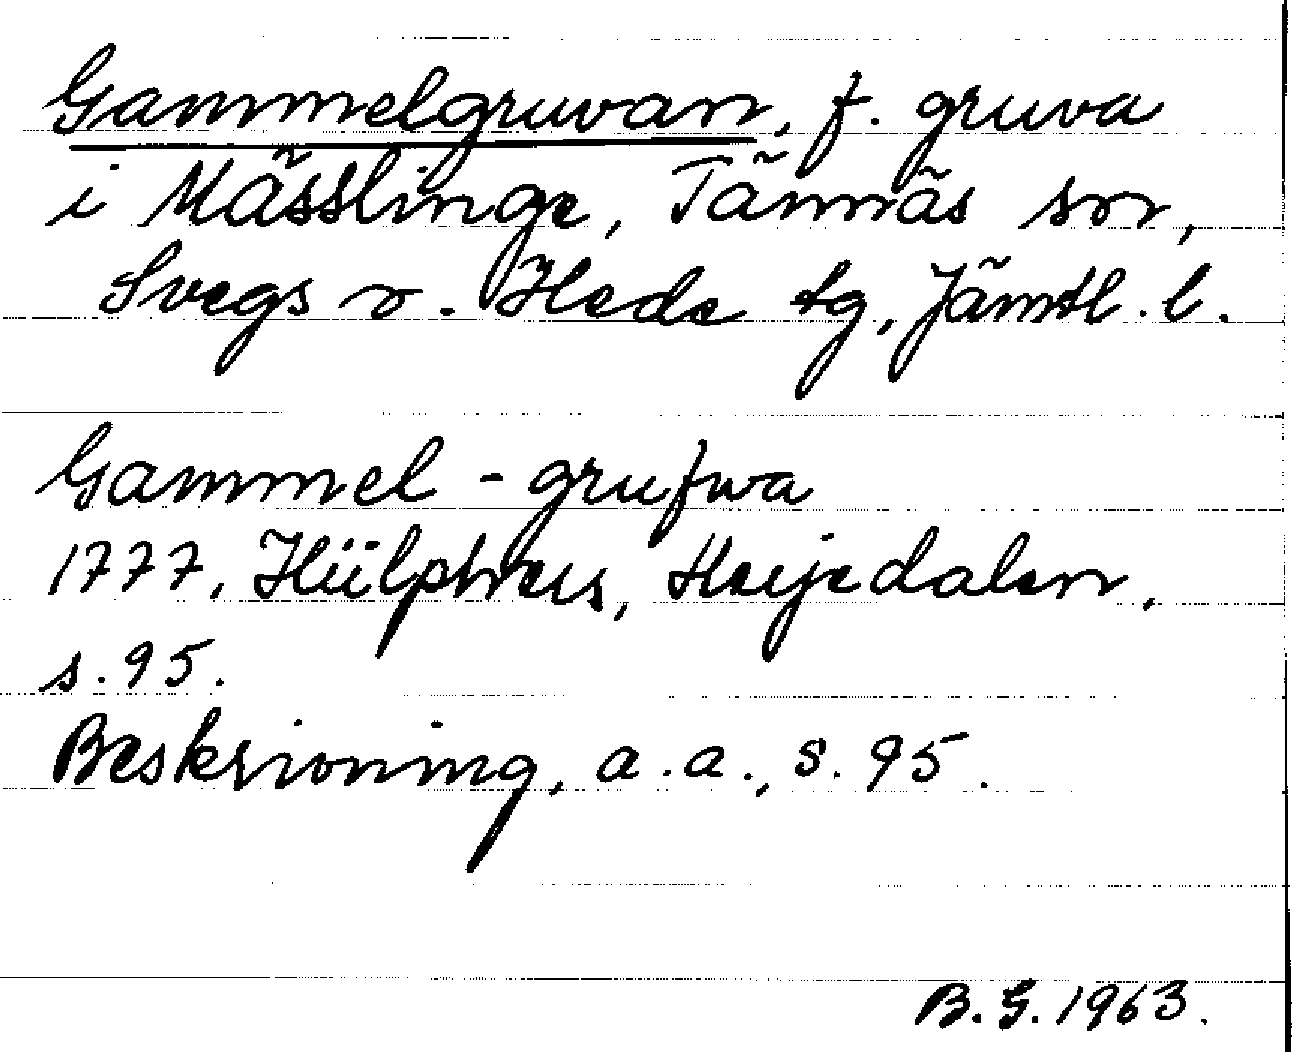 Gammelgruvan, f. gruva
i Mässlinge, Tännäs sn,
Svegs o. Hede tg, Jämtl. l.
Gammel - grufwa
1777, Hülphers, Herjedalen,
s. 95.
Beskrivning, a.a., s. 95.
B.G. 1963.